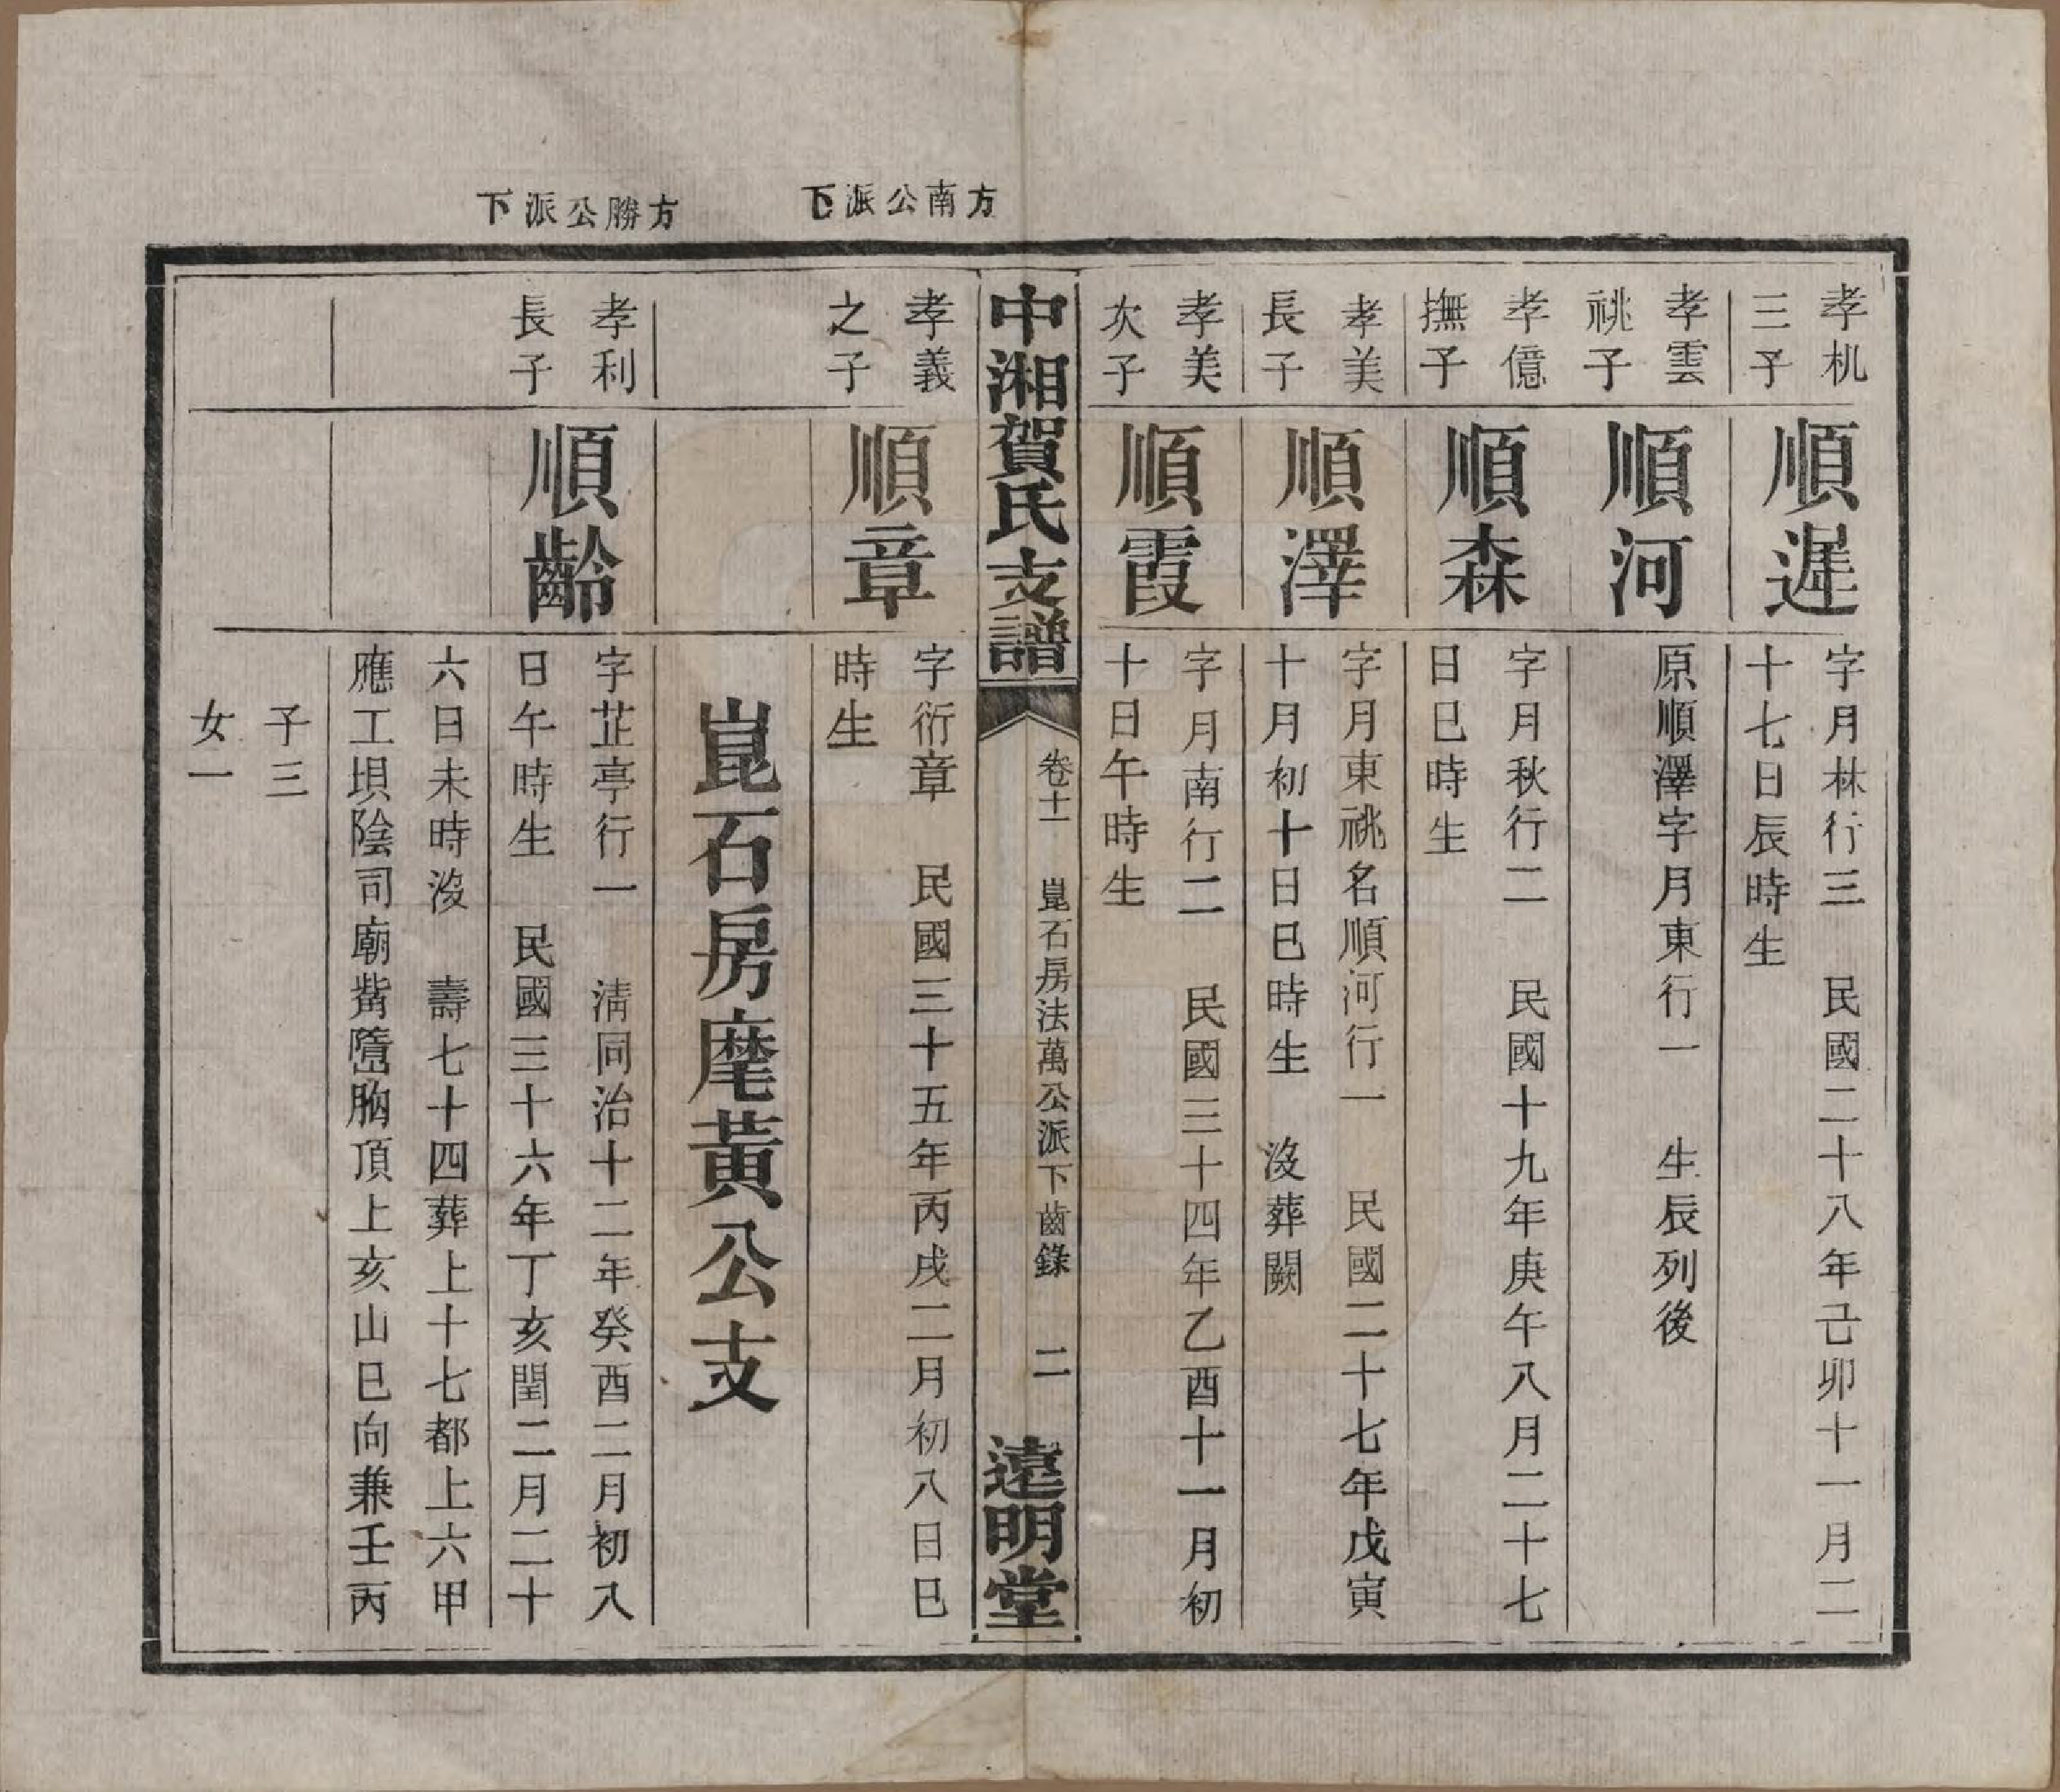 方南公派下
方勝公派下
孝机
三子
順遲
字月林行三　民國二十八年己卯十一月二
十七日辰時生
孝雲
祧子
順河
原順澤字月東行一　生辰列後
孝億
撫子
順森
字月秋行二　民國十九年庚午八月二十七
日巳時生
孝美
長子
順澤
字月東祧名順河行一　民國二十七年戊寅
十月初十日巳時生　沒葬闕
孝美
次子
順霞
字月南行二　民國三十四年乙酉十一月初
十日午時生
中湘賀氏支譜
卷十一　崑石房法萬公派下齒錄　二
遠明堂
孝義
之子
順章
字衍章　民國三十五年丙戌二月初八日巳
時生
崑石房庢黃公支
孝利
長子
順齡
字芷亭行一　清同治十二年癸酉二月初八
日午時生　民國三十六年丁亥閏二月二十
六日未時沒　壽七十四葬上十七都上六甲
應工垻陰司廟觜墮胸頂上亥山巳向兼壬丙
子三
女一